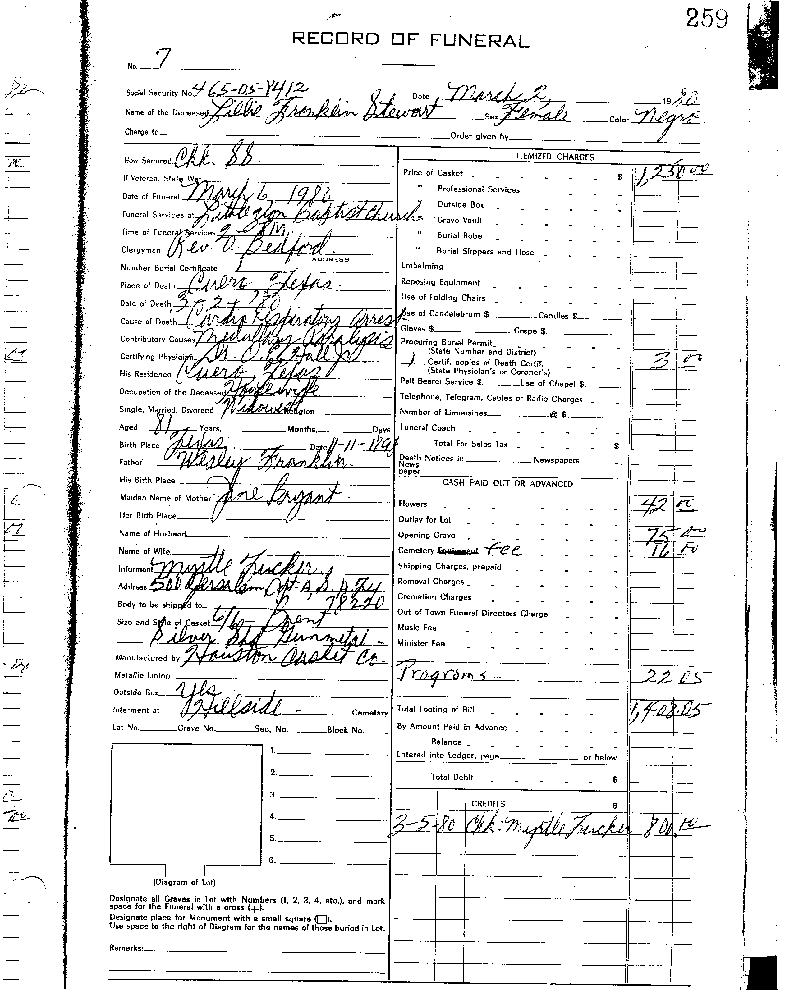 259
RECORD OF FUNERAL
No. 7
Social Security No. 465-05-8412 Date March 2, 1980
Name of the Deceased Lillie Franklin Stewart Sex Female Color Negro
Charge to Order given by
How Secured Chk. 88
If Veteran, State War
Date of Funeral March 6, 1980
Funeral Services at Little Zion Baptist Church
Time of Funeral Services 2 PM
Clergyman Rev. O. Bedford
ADDRESS
Number Burial Certificate
Place of Death Cuero, Texas
Date of Death 3-2-80
Cause of Death Cardio Respiratory Arrest
Contributory Causes Medullary Paralysis
Certifying Physician Dr. O. E. Hall Jr
His Residence Cuero Texas
Occupation of the Deceased Housewife
Single, Married, Divorced Widowed Religion
Aged 81 Years, Months, Days
Birth Place Texas Date 11-11-1898
Father Wesley Franklin
His Birth Place
Maiden Name of Mother Jane Bryant
Her Birth Place
Name of Husband
Name of Wife
Informant Myrtle Tucker
Address 500 Apt. A, 78220
Body to be shipped to
Size and Style of Casket 6/6
Silver Gunmetal -
Manufactured by Houston Casket Co.
Metallic Lining
Outside Box Yes
Interment at Hillside - Cemetery
Lot No. Grave No. Sec. No. Block No.
1.
2.
3.
4.
5.
6.
(Diagram of Lot)
Designate all Graves in Lot with Numbers (1, 2, 3, 4, etc.), and mark
space for the Funeral with a cross (+).
Designate place for Monument with a small square (□).
Use space to the right of Diagram for the names of those buried in Lot.
Remarks:
ITEMIZED CHARGES
Price of Casket $ 1,250 00
" Professional Services
" Outside Box
" Grave Vault
" Burial Robe
" Burial Slippers and Hose
Embalming
Reposing Equipment
Use of Folding Chairs
Use of Candelabrum $ Candles $
Gloves $ Crepe $
Procuring Burial Permit
(State Number and District)
1 Certif. copies of Death Certif. 3 00
(State Physician's or Coroner's)
Pall Bearer Service $ Use of Chapel $
Telephone, Telegram, Cables or Radio Charges
Number of Limousines @ $
Funeral Coach
Total For Sales Tax $
Death Notices in Newspapers
News
paper
CASH PAID OUT OR ADVANCED
Flowers 42 00
Outlay for Lot
Opening Grave 75 00
Cemetery Equipment Fee 16 00
Shipping Charges, prepaid
Removal Charges
Cremation Charges
Out of Town Funeral Directors Charge
Music Fee
Minister Fee
Programs 22 05
Total Footing of Bill 1,408.05
By Amount Paid in Advance
Balance
Entered into Ledger, page or below
Total Debit $
CREDITS $
3-5-80 Chk: Myrtle Tucker 800.00